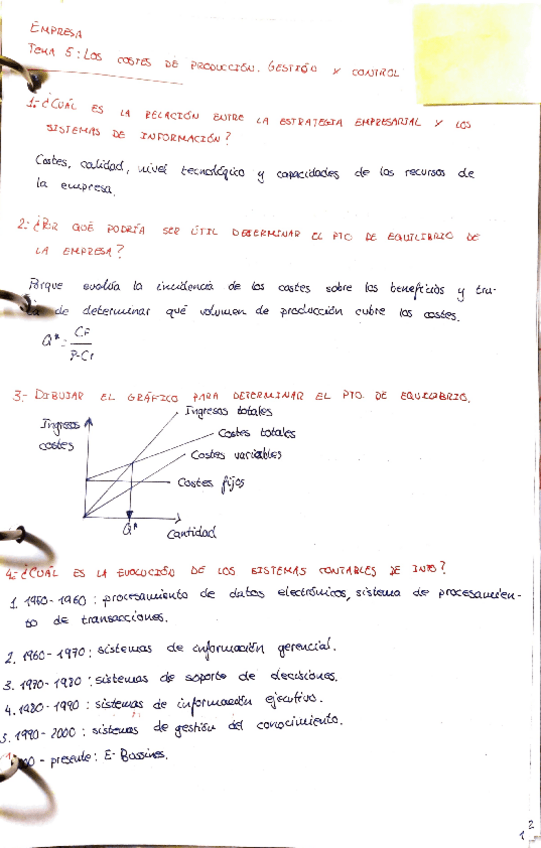 EMPRESA
TEMA 5: LOS COSTES DE PRODUCCIÓN. GESTIÓN Y CONTROL
1.- ¿CUÁL ES LA RELACIÓN ENTRE LA ESTRATEGIA EMPRESARIAL Y LOS
SISTEMAS DE INFORMACIÓN?
Costes, calidad, nivel tecnológico y capacidades de los recursos de
la empresa.
2.- ¿POR QUÉ PODRÍA SER ÚTIL DETERMINAR EL PTO DE EQUILIBRIO DE
LA EMPRESA?
Porque evalúa la incidencia de los costes sobre los beneficios y tra-
ta de determinar qué volumen de producción cubre los costes.
Q* = CF
P-Cv
3.- DIBUJAR EL GRÁFICO PARA DETERMINAR EL PTO. DE EQUILIBRIO.
Ingresos totales
Ingresos
costes
Costes totales
Costes variables
Costes fijos
Q*
Cantidad
4.- ¿CUÁL ES LA EVOLUCIÓN DE LOS SISTEMAS CONTABLES DE INFO?
1. 1950-1960: procesamiento de datos electrónicos, sistema de procesamien-
to de transacciones.
2. 1960-1970: sistemas de información gerencial.
3. 1970-1980: sistemas de soporte de decisiones.
4. 1980-1990: sistemas de información ejecutivo.
5. 1990-2000: sistemas de gestión del conocimiento.
00 - presente: E-Bussines.
1 2